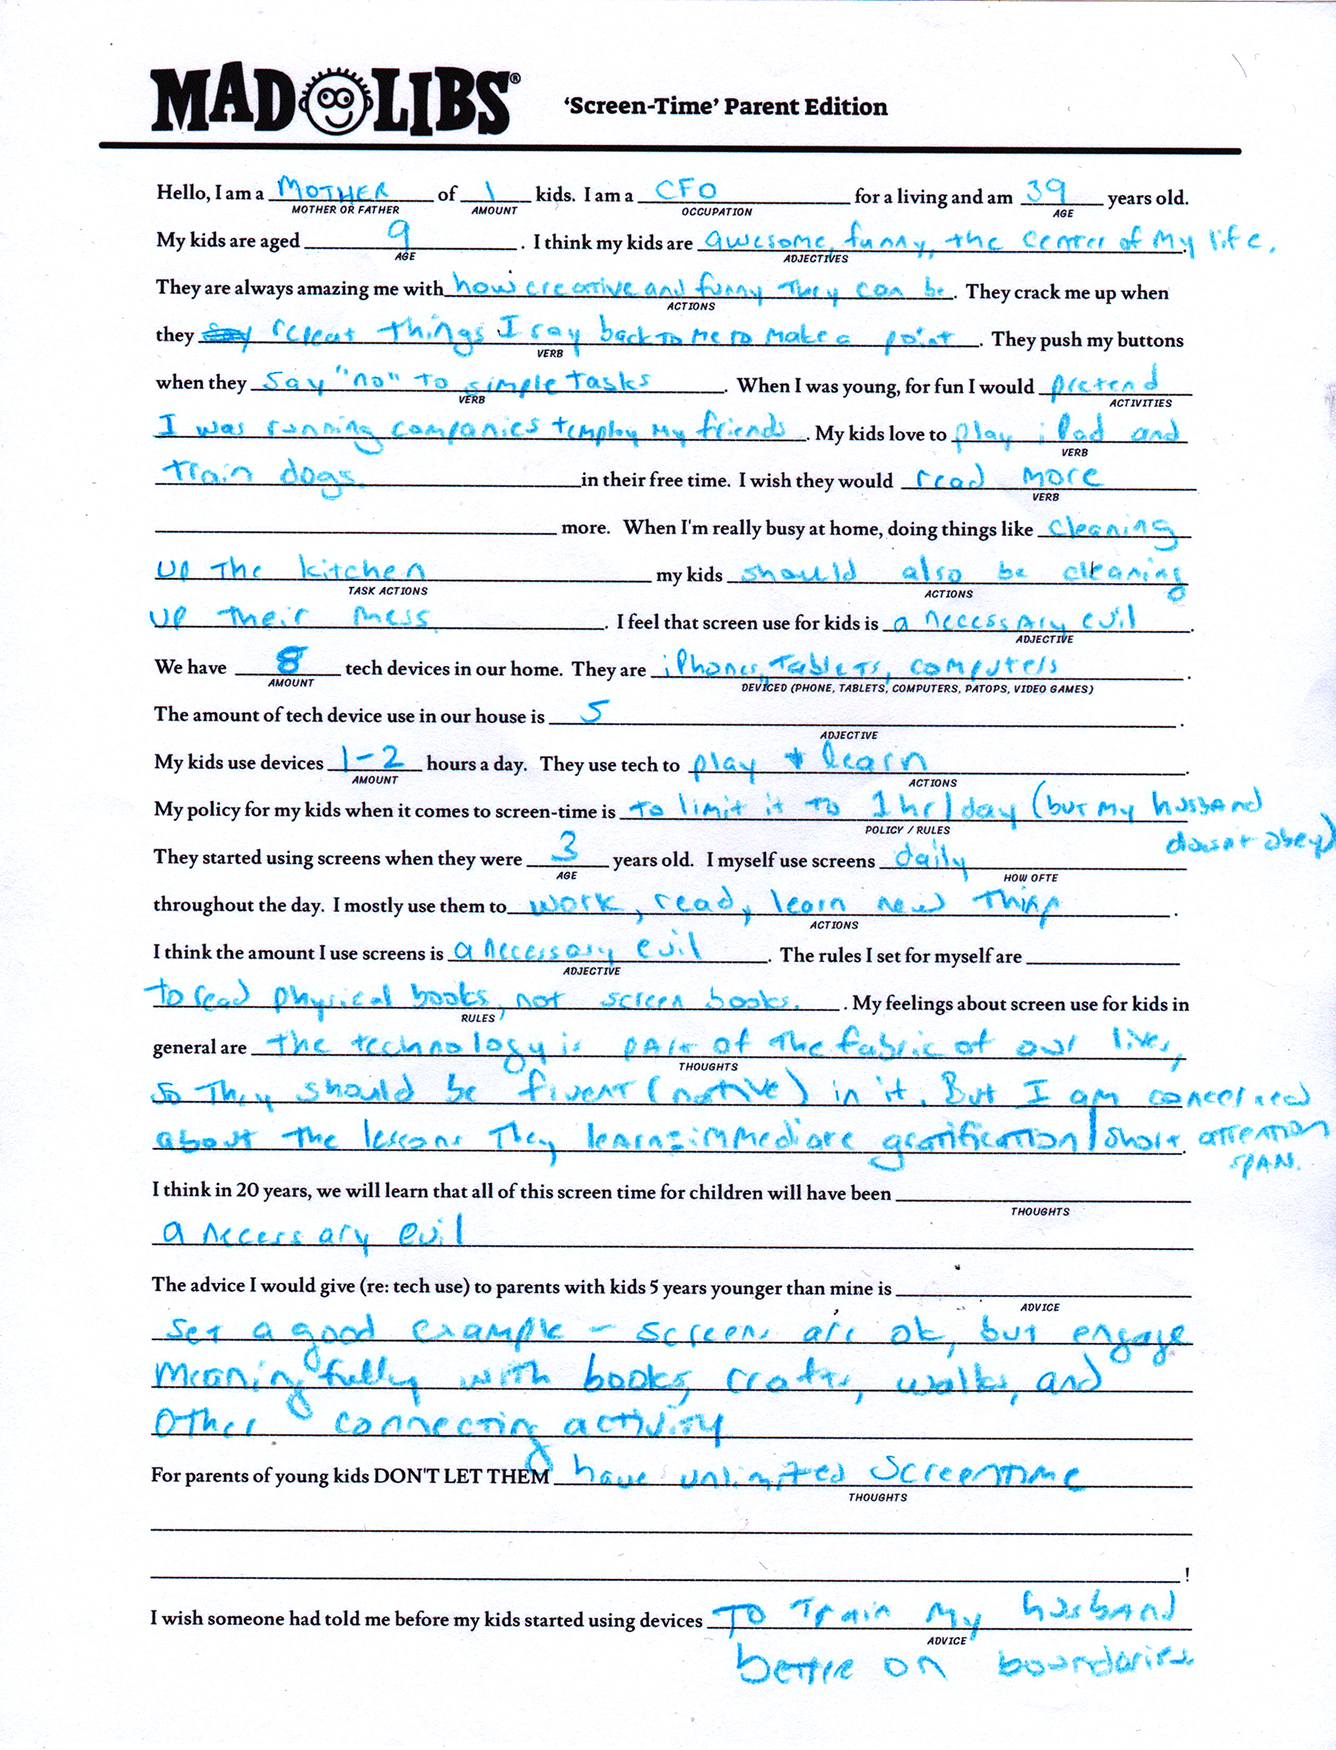 MAD LIBS® 'Screen-Time' Parent Edition
Hello, I am a MOTHER of 1 kids. I am a CFO for a living and am 39 years old.
MOTHER OR FATHER AMOUNT OCCUPATION AGE
My kids are aged 9. I think my kids are awesome, funny, the center of my life.
AGE ADJECTIVES
They are always amazing me with how creative and funny they can be. They crack me up when
ACTIONS
they repeat things I say back to me to make a point. They push my buttons
VERB
when they say "no" to simple tasks. When I was young, for fun I would pretend
VERB ACTIVITIES
I was running companies + employ my friends. My kids love to play iPad and
VERB
train dogs in their free time. I wish they would read more
VERB
more. When I'm really busy at home, doing things like cleaning
up the kitchen my kids should also be cleaning
TASK ACTIONS ACTIONS
up their mess. I feel that screen use for kids is a necessary evil.
ADJECTIVE
We have 8 tech devices in our home. They are iPhones, Tablets, computers.
AMOUNT DEVICED (PHONE, TABLETS, COMPUTERS, PATOPS, VIDEO GAMES)
The amount of tech device use in our house is 5.
ADJECTIVE
My kids use devices 1-2 hours a day. They use tech to play + learn.
AMOUNT ACTIONS
My policy for my kids when it comes to screen-time is to limit it to 1hr/day (but my husband
POLICY / RULES doesn't obey)
They started using screens when they were 3 years old. I myself use screens daily
AGE HOW OFTE
throughout the day. I mostly use them to work, read, learn new thing.
ACTIONS
I think the amount I use screens is a necessary evil. The rules I set for myself are
ADJECTIVE
to read physical books, not screen books.. My feelings about screen use for kids in
RULES
general are the technology is part of the fabric of our lives,
THOUGHTS
so they should be fluent (native) in it. But I am concerned
about the lessons they learn = immediate gratification/short attention
span.
I think in 20 years, we will learn that all of this screen time for children will have been
THOUGHTS
a necessary evil
The advice I would give (re: tech use) to parents with kids 5 years younger than mine is
ADVICE
set a good example - screens are ok, but engage
meaningfully with books, crafts, walks, and
other connecting activity
For parents of young kids DON'T LET THEM have unlimited screentime
THOUGHTS
!
I wish someone had told me before my kids started using devices to train my husband
ADVICE
better on boundaries.